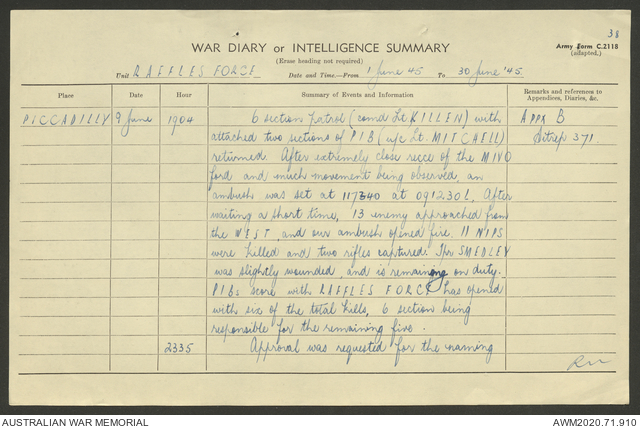 38
WAR DIARY or INTELLIGENCE SUMMARY
Army Form C.2118
(adapted.)
(Erase heading not required)
Unit RAFFLES FORCE Date and Time—From 1 June 45 To 30 June '45
Place Date Hour Summary of Events and Information Remarks and references to
Appendices, Diaries, &c.
PICCADILLY 9 June 1904 6 section Patrol (comd Lt. KILLEN) with APPX B
attached two sections of PIB (u/c Lt. MITCHELL) Sitrep 371.
returned. After extremely close recce of the MIVO
ford and much movement being observed, an
ambush was set at 117340 at 091230L. After
waiting a short time, 13 enemy approached from
the WEST, and our ambush opened fire. 11 NIPS
were killed and two rifles captured. Tpr SMEDLEY
was slightly wounded, and is remaining on duty.
PIBs score with RAFFLES FORCE has opened
with six of the total kills, 6 section being
responsible for the remaining five.
2335 Approval was requested for the naming
AUSTRALIAN WAR MEMORIAL AWM2020.71.910